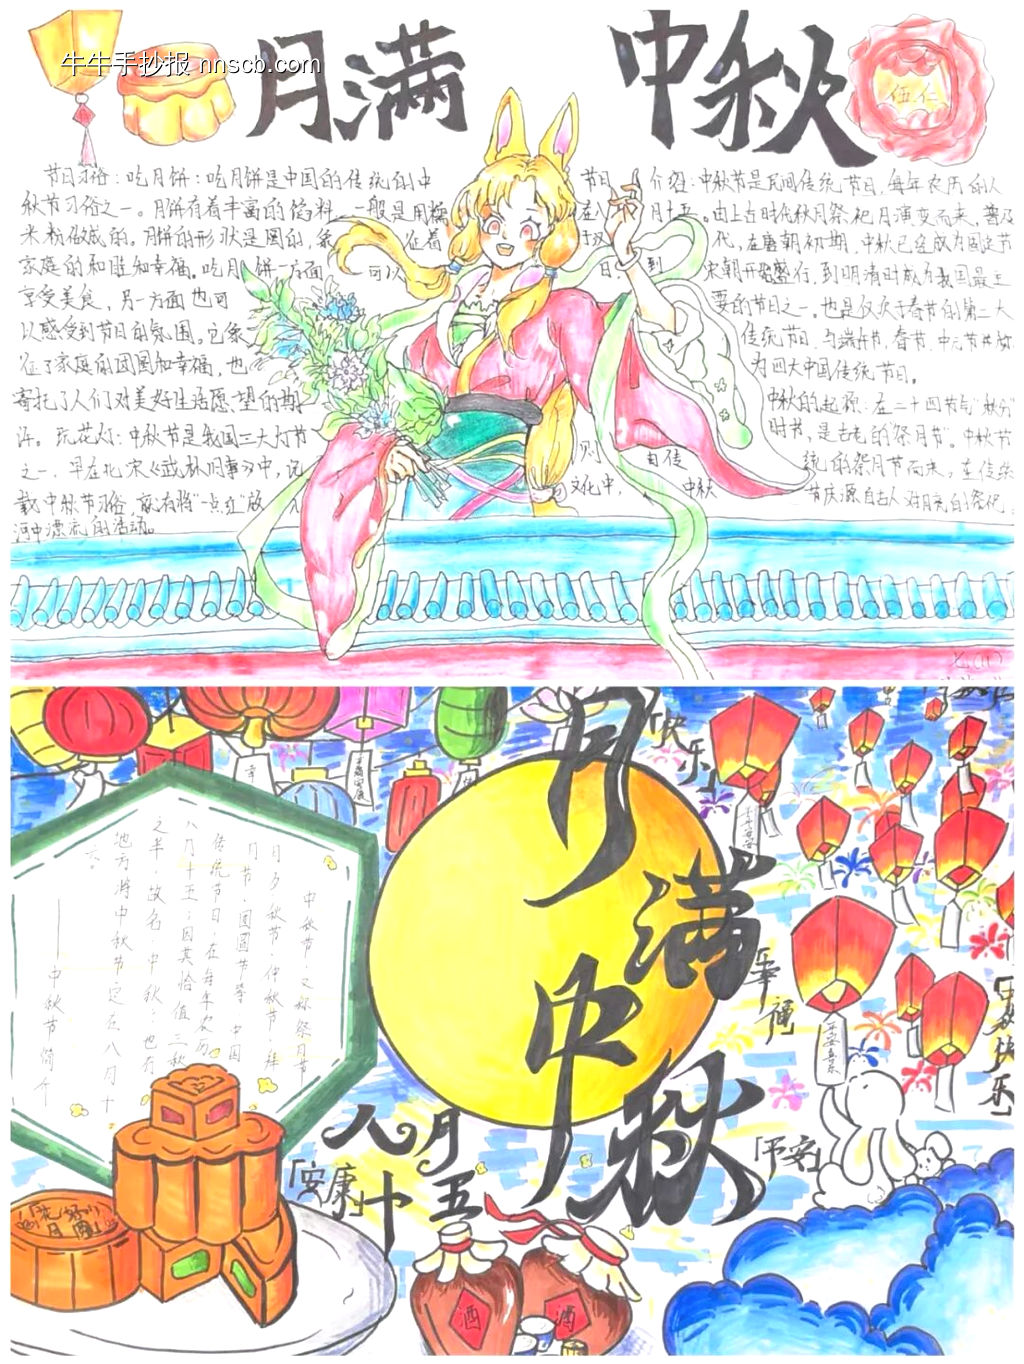 牛牛手抄报 nnscb.com
月满 中秋
伍仁
节日习俗：吃月饼：吃月饼是中国的传统的中
秋节习俗之一。月饼有着丰富的馅料，一般是用糯
米粉做成的。月饼的形状是圆的，象征着
家庭的和睦和幸福。吃月饼一方面可以
享受美食，另一方面也可
以感受到节日的氛围。它象
征了家庭的团圆和幸福，也
寄托了人们对美好生活愿望的期
许。玩花灯：中秋节是我国三大灯节
之一，早在北宋《武林旧事》中，记
载中秋节习俗，就有将“一点红”放入
河中漂流的活动。
节日介绍：中秋节是民间传统节日，每年农历的八
在八月十五。由上古时代秋月祭祀月演变而来，普及
汉代，在唐朝初期，中秋已经成为固定节
日到宋朝开始盛行，到明清时成为我国最主
要的节日之一。也是仅次于春节的第二大
传统节日。与端午节、春节、中元节共称
为四大中国传统节日。
中秋的起源：在二十四节气“秋分”
时节，是古老的“祭月节”。中秋节
则由传统的祭月节而来，在传统
文化中，中秋节庆源自古人对月亮的祭祀
月满中秋
「快乐」
「幸福」
「中秋快乐」
「平安」
「安康」
八月十五
平安喜乐
中秋节，又称祭月节
月夕、秋节、仲秋节、拜
月节、团圆节等，中国
传统节日，在每年农历
八月十五；因其恰值三秋
之半，故名“中秋”，也有
地方将中秋节定在八月十
六。
——中秋节简介
酒
酒